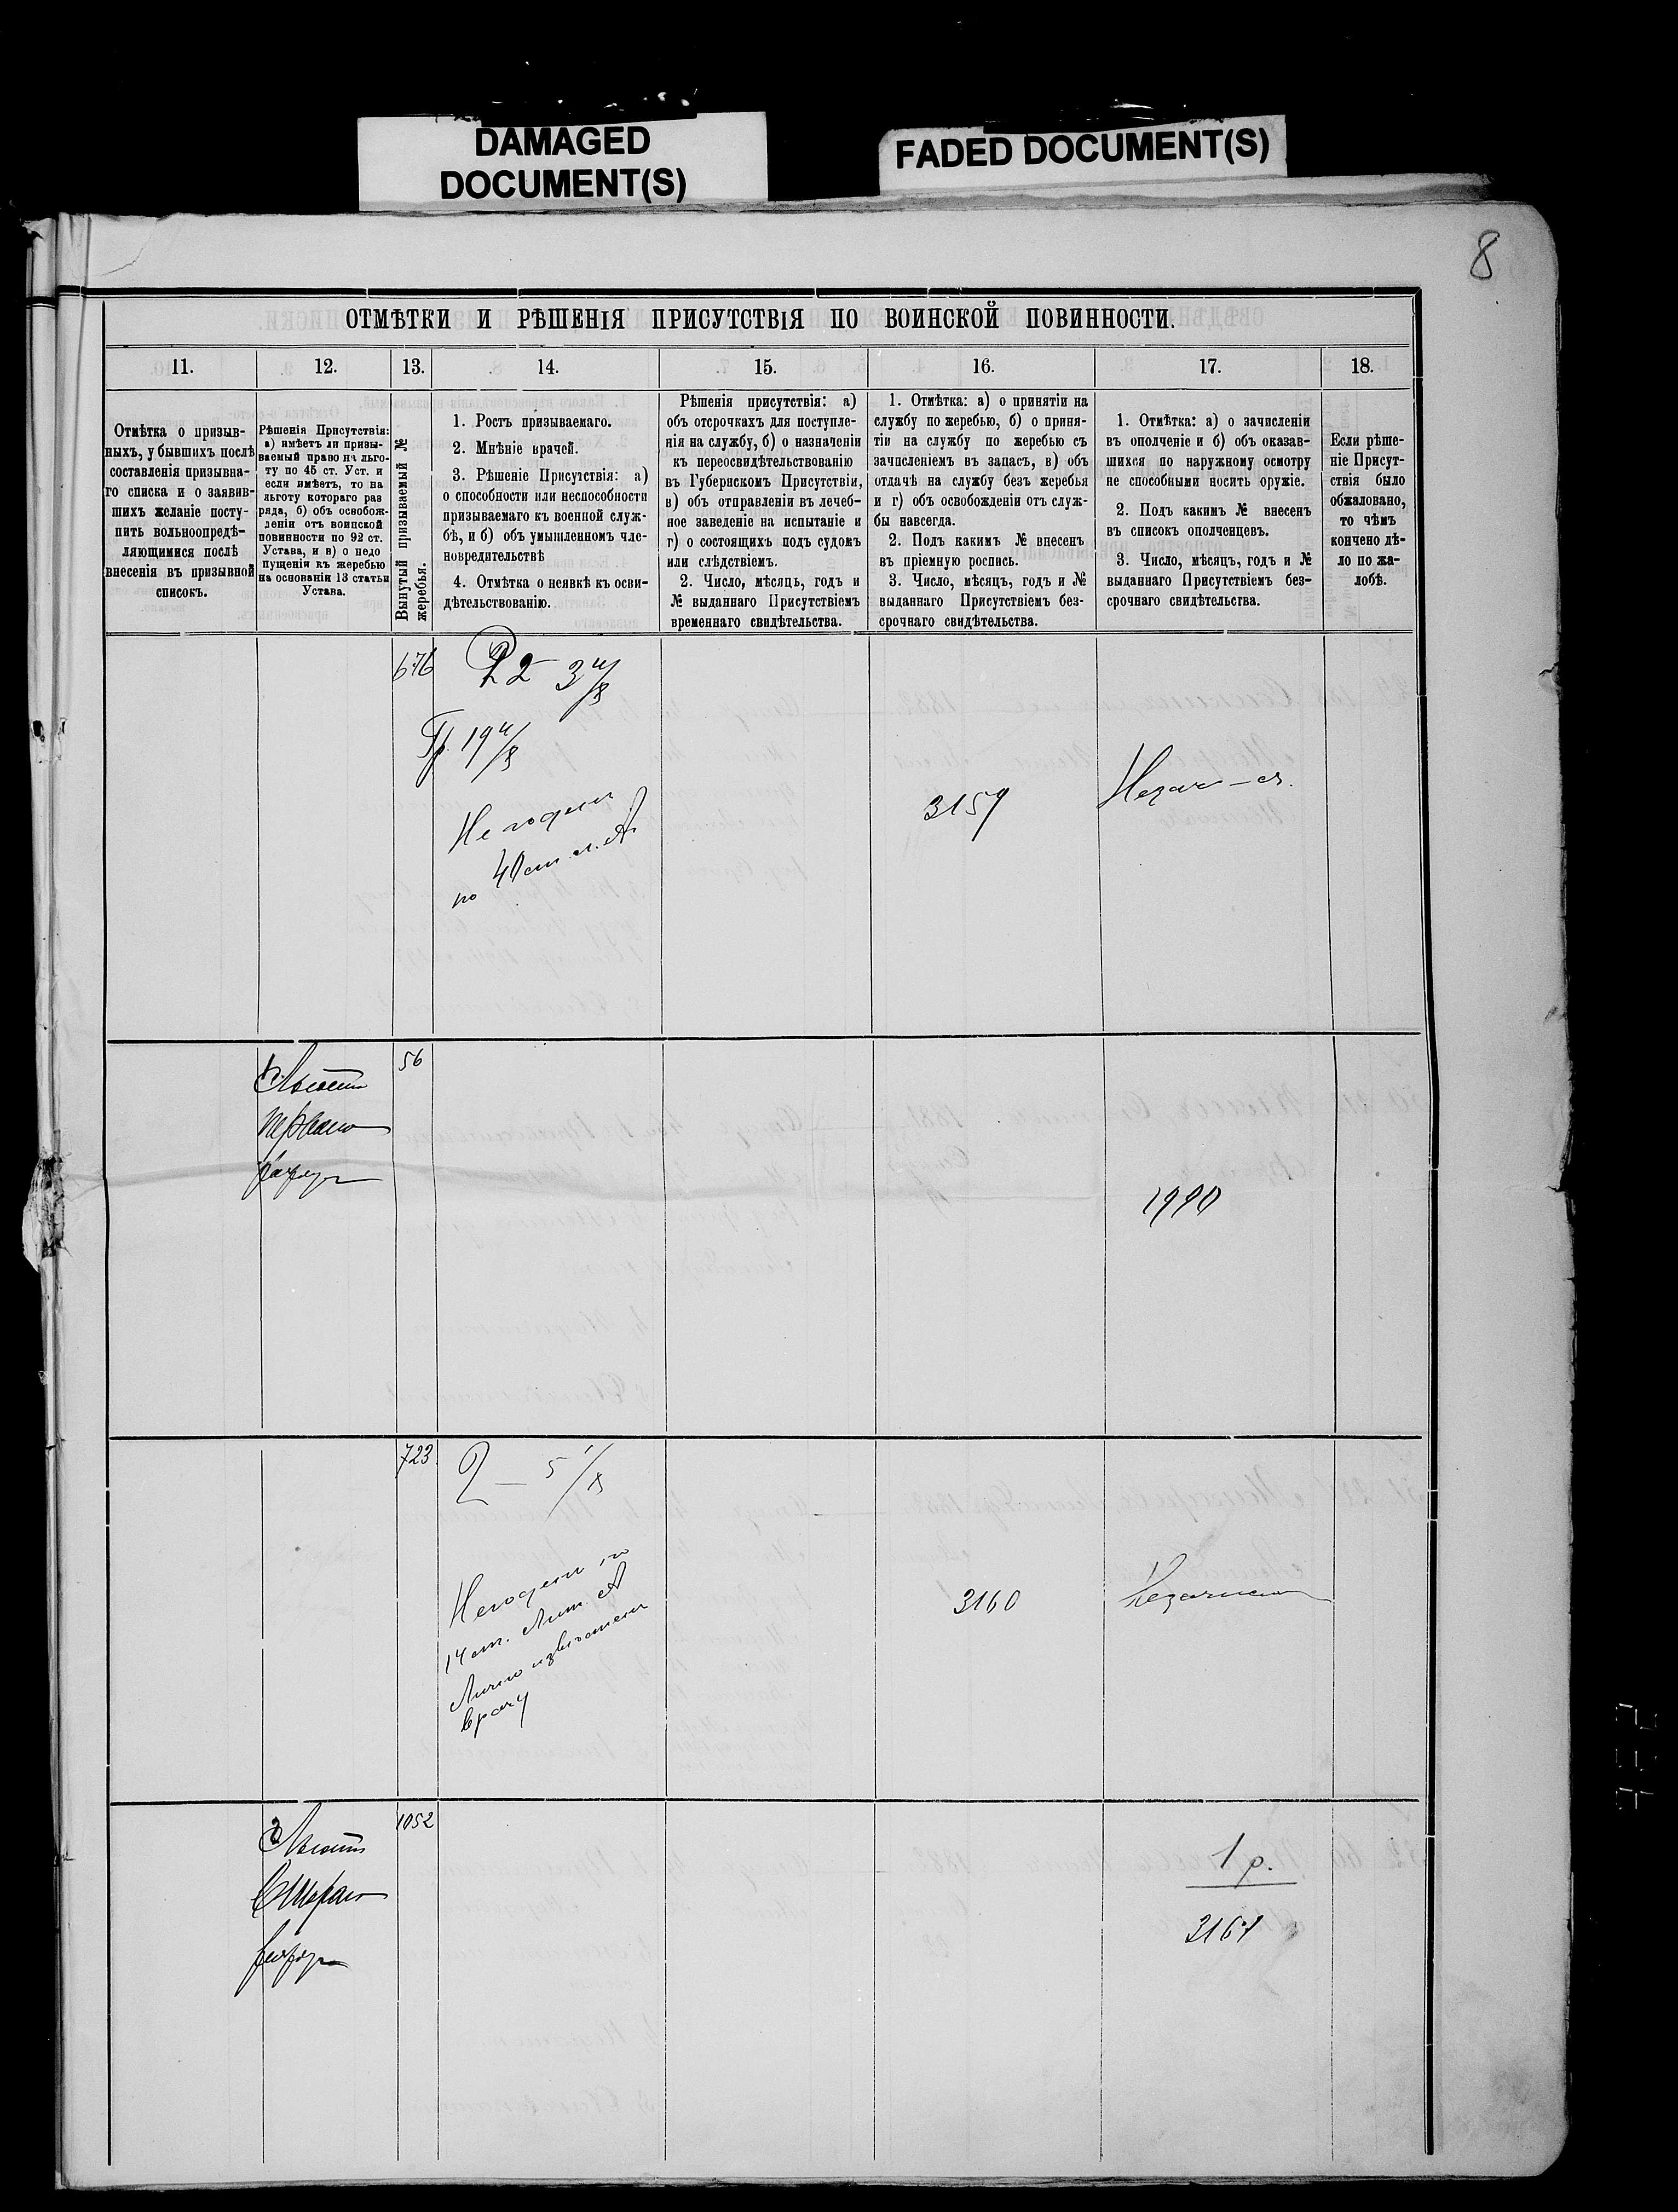 DAMAGED
DOCUMENT(S)
FADED DOCUMENT(S)
8
ОТМѢТКИ И РѢШЕНІЯ ПРИСУТСТВІЯ ПО ВОИНСКОЙ ПОВИННОСТИ.
11.
12.
13.
14.
15.
16.
17.
18.
Отмѣтка о призыв-
ныхъ, убывшихъ послѣ
составленія призывна-
го списка и о заявив-
шихъ желаніе посту-
пить вольноопредѣ-
ляющимися послѣ
внесенія въ призывной
списокъ.
Рѣшенія Присутствія:
а) имѣетъ ли призы-
ваемый право на льго-
ту по 45 ст. Уст. и
если имѣетъ, то на
льготу котораго раз
ряда, б) объ освобож-
деніи отъ воинской
повинности по 92 ст.
Устава, и в) о недо
пущеніи къ жеребью
на основаніи 13 статьи
Устава.
Вынутый призываемый №
жеребья.
1. Ростъ призываемаго.
2. Мнѣніе врачей.
3. Рѣшеніе Присутствія: а)
о способности или неспособности
призываемаго къ военной служ-
бѣ, и б) объ умышленномъ чле-
новредительствѣ
4. Отмѣтка о неявкѣ къ осви-
дѣтельствованію.
Рѣшенія присутствія: а)
объ отсрочкахъ для поступле-
нія на службу, б) о назначеніи
къ переосвидѣтельствованію
въ Губернскомъ Присутствіи,
в) объ отправленіи въ лечеб-
ное заведеніе на испытаніе и
г) о состоящихъ подъ судомъ
или слѣдствіемъ.
2. Число, мѣсяць, годъ и
№ выданнаго Присутствіемъ
временнаго свидѣтельства.
1. Отмѣтка: а) о принятіи на
службу по жеребью, б) о приня-
тіи на службу по жеребью съ
зачисленіемъ въ запасъ, в) объ
отдачѣ на службу безъ жеребья
и г) объ освобожденіи отъ служ-
бы навсегда.
2. Подъ какимъ № внесенъ
въ пріемную роспись.
3. Число, мѣсяцъ, годъ и №
выданнаго Присутствіемъ без-
срочнаго свидѣтельства.
1. Отмѣтка: а) о зачисленіи
въ ополченіе и б) объ оказав-
шихся по наружному осмотру
не способными носить оружіе.
2. Подъ какимъ № внесенъ
въ списокъ ополченцевъ.
3. Число, мѣсяцъ, годъ и №
выданнаго Присутствіемъ без-
срочнаго свидѣтельства.
Если рѣше-
ніе Присут-
ствія было
обжаловано,
то чѣмъ
кончено дѣ-
ло по жа-
лобѣ.
676
2 3 4/8
Гр. 19 4/8
Не годенъ
по 40 ст. л. А
3159
56
Льгота
перваго
разряда
1990
723
2 – 5 1/8
Негоденъ по
14 ст. Лит. А
Лично извѣстенъ
врачу
3160
Незачисленъ
1052
Льгота
Втораго
разряда
1 р.
3161